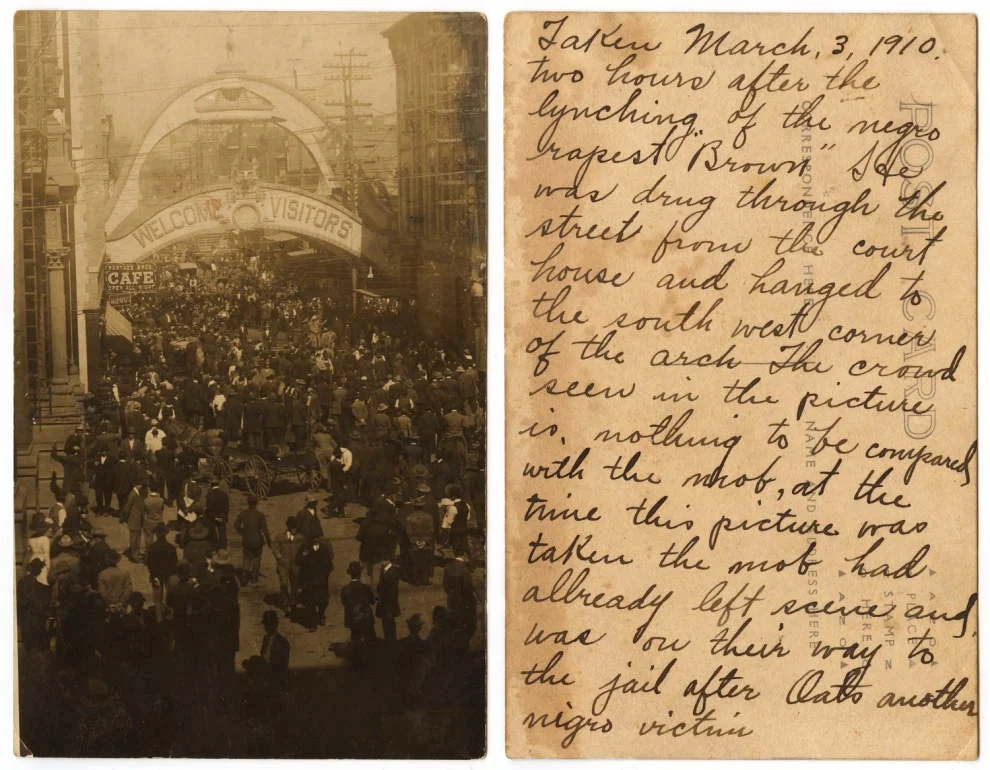 WELCOME VISITORS
CAFE
OPEN ALL NIGHT
Taken March, 3, 1910.
two hours after the
lynching of the negro
rapest "Brown" He
was drug through the
street from the court
house and hanged to
the south west corner
of the arch The crowd
seen in the picture
is, nothing to be compared
with the mob, at the
time this picture was
taken the mob had
allready left scene and
was on their way to
the jail after Oats another
nigro victim
POST CARD
CORRESPONDENCE HERE
NAME AND ADDRESS HERE
PLACE
STAMP
HERE